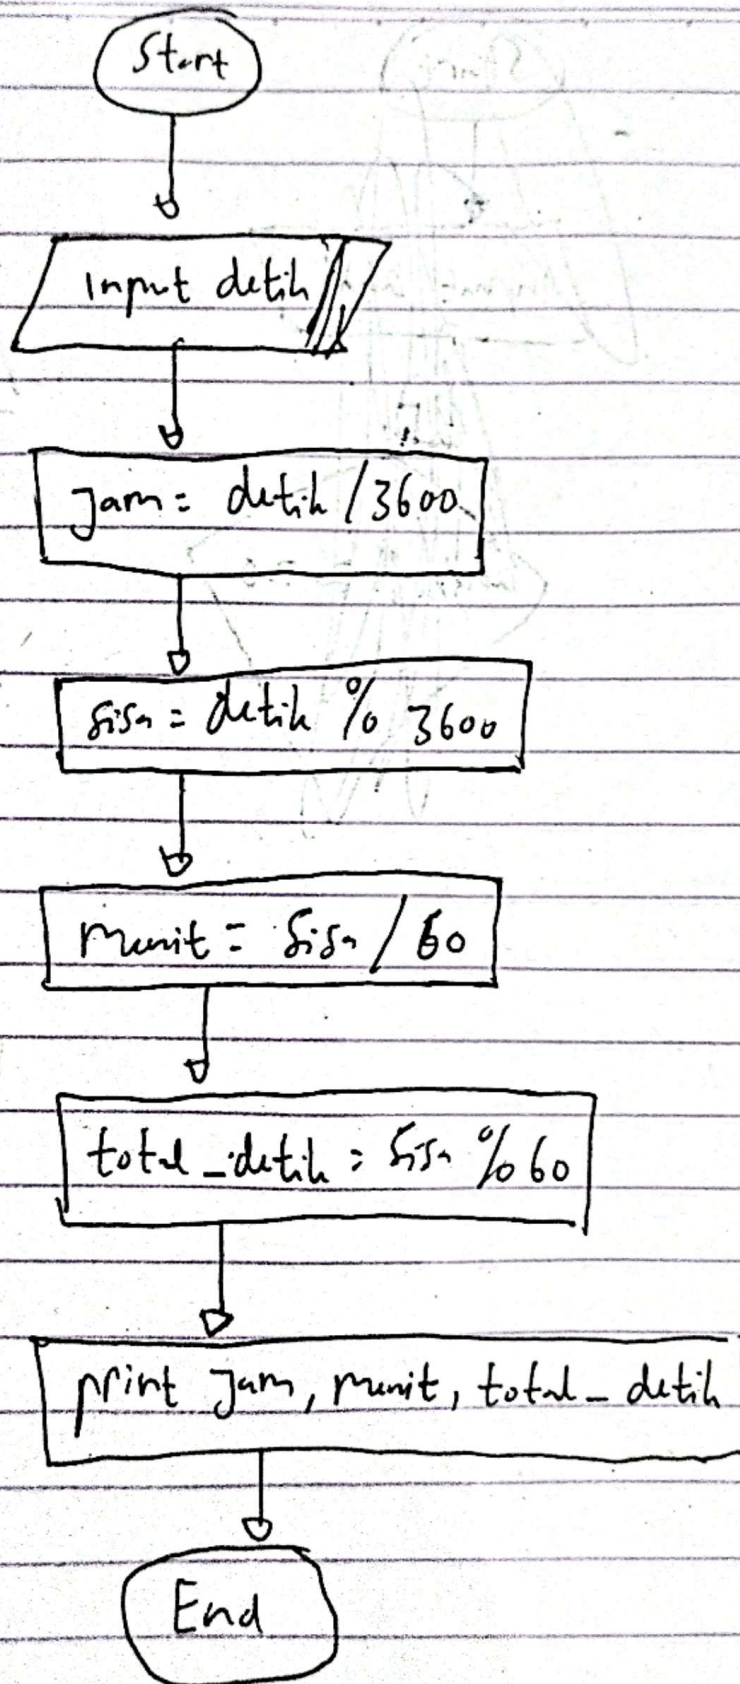 Start
Input detik
Jam = detik / 3600
sisa = detik % 3600
menit = sisa / 60
total_detik = sisa % 60
print Jam, menit, total_detik
End